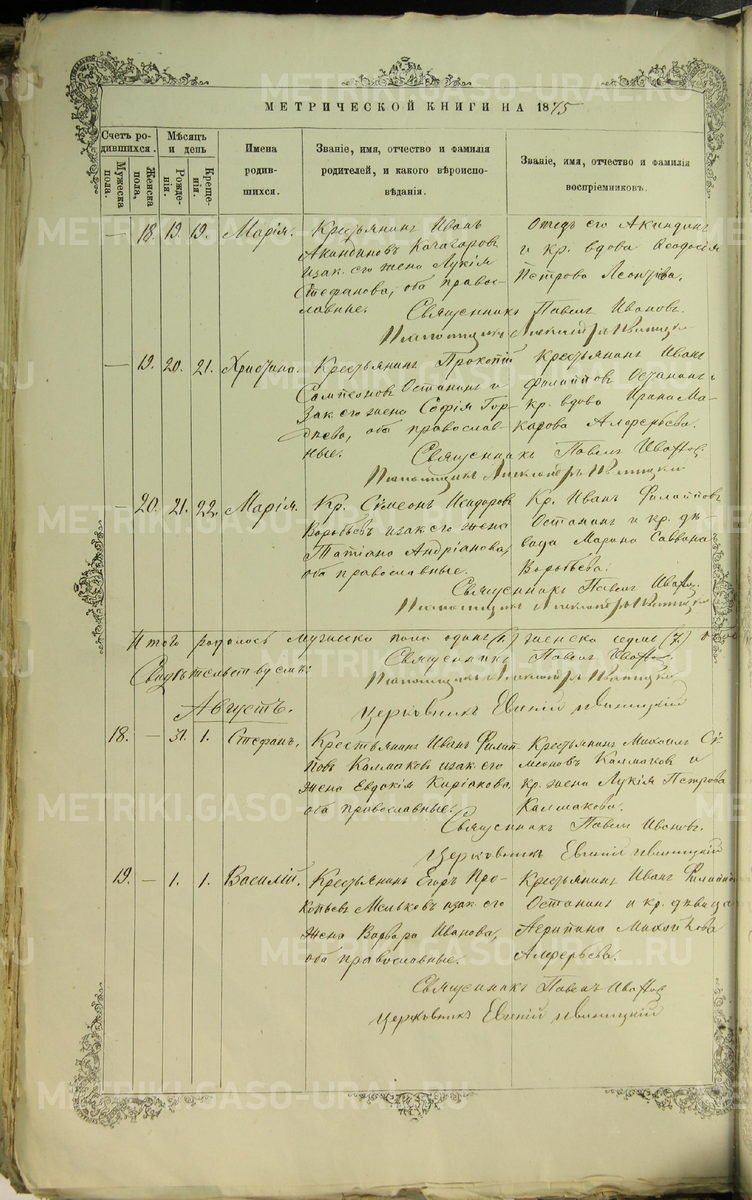 METRIKI-GASO-URAL.RU
МЕТРИЧЕСКОЙ КНИГИ НА 1875
Счетъ ро-
дившихся.
Мужеска пола.
Женска пола,
Мѣсяцъ
и день
Рожде-
нія.
Креще-
нія.
Имена
родив-
шихся.
Званіе, имя, отчество и фамилія
родителей, и какого вѣроиспо-
вѣданія.
Званіе, имя, отчество и фамилія
воспріемниковъ.
— 18. 19. 19. Марія.
Крестьянинъ Иванъ
Акиндиновъ
и зак. его жена Лукія
Стефанова, оба правос-
лавные.
Отецъ его Акиндинъ
и кр. вдова Ѳеодосія
Петрова
Священникъ Павелъ Ивановъ.
— 19. 20. 21. Христина.
Крестьянинъ Прокопій
Сампсоновъ Останинъ и
зак его жена Софія Гор-
дѣева, оба православ-
ные.
Крестьянинъ Иванъ
Филипповъ Останинъ и
кр. вдова Ирина Ма-
карова Алферьева.
Священникъ Павелъ Ивановъ
— 20. 21. 22. Марія.
Кр. Симеонъ Исидоровъ
Воробьевъ и зак его жена
Татіана Андріанова,
оба православные.
Кр. Иванъ Филипповъ
Останинъ и кр. дѣ-
вица Марина Саввина
Воробьева.
Священникъ Павелъ Ивановъ.
Итого родилось Мужеска пола одинъ (1) женска седмь (7)
Свидѣтельствуемъ:
Священникъ Павелъ Ивановъ
Августъ.
Церковникъ Евгеній
18. — 31. 1. Стефанъ.
Крестьянинъ Иванъ Филип-
повъ Калмаковъ и зак его
жена Евдокія Киріакова,
оба православные.
Крестьянинъ Михаилъ Си-
меоновъ Калмаковъ и
кр. жена Лукія Петрова
Калмакова.
Священникъ Павелъ Ивановъ.
Церковникъ Евгеній
19. — 1. 1. Василій.
Крестьянинъ Егоръ Про-
копьевъ Мельковъ и зак его
жена Варвара Иванова,
оба православные.
Крестьянинъ Иванъ Филипповъ
Останинъ и кр. дѣвица
Михайлова
Алферьева.
Священникъ Павелъ Ивановъ
Церковникъ Евгеній